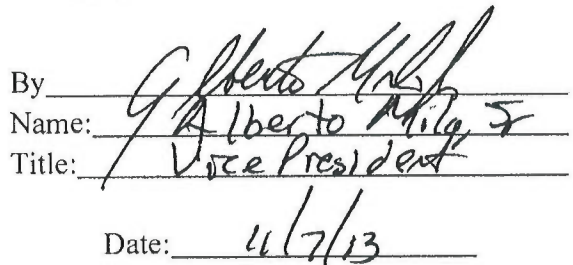 By Alberto
Name: Alberto Mila, Sr
Title: Vice President
Date: 11/7/13